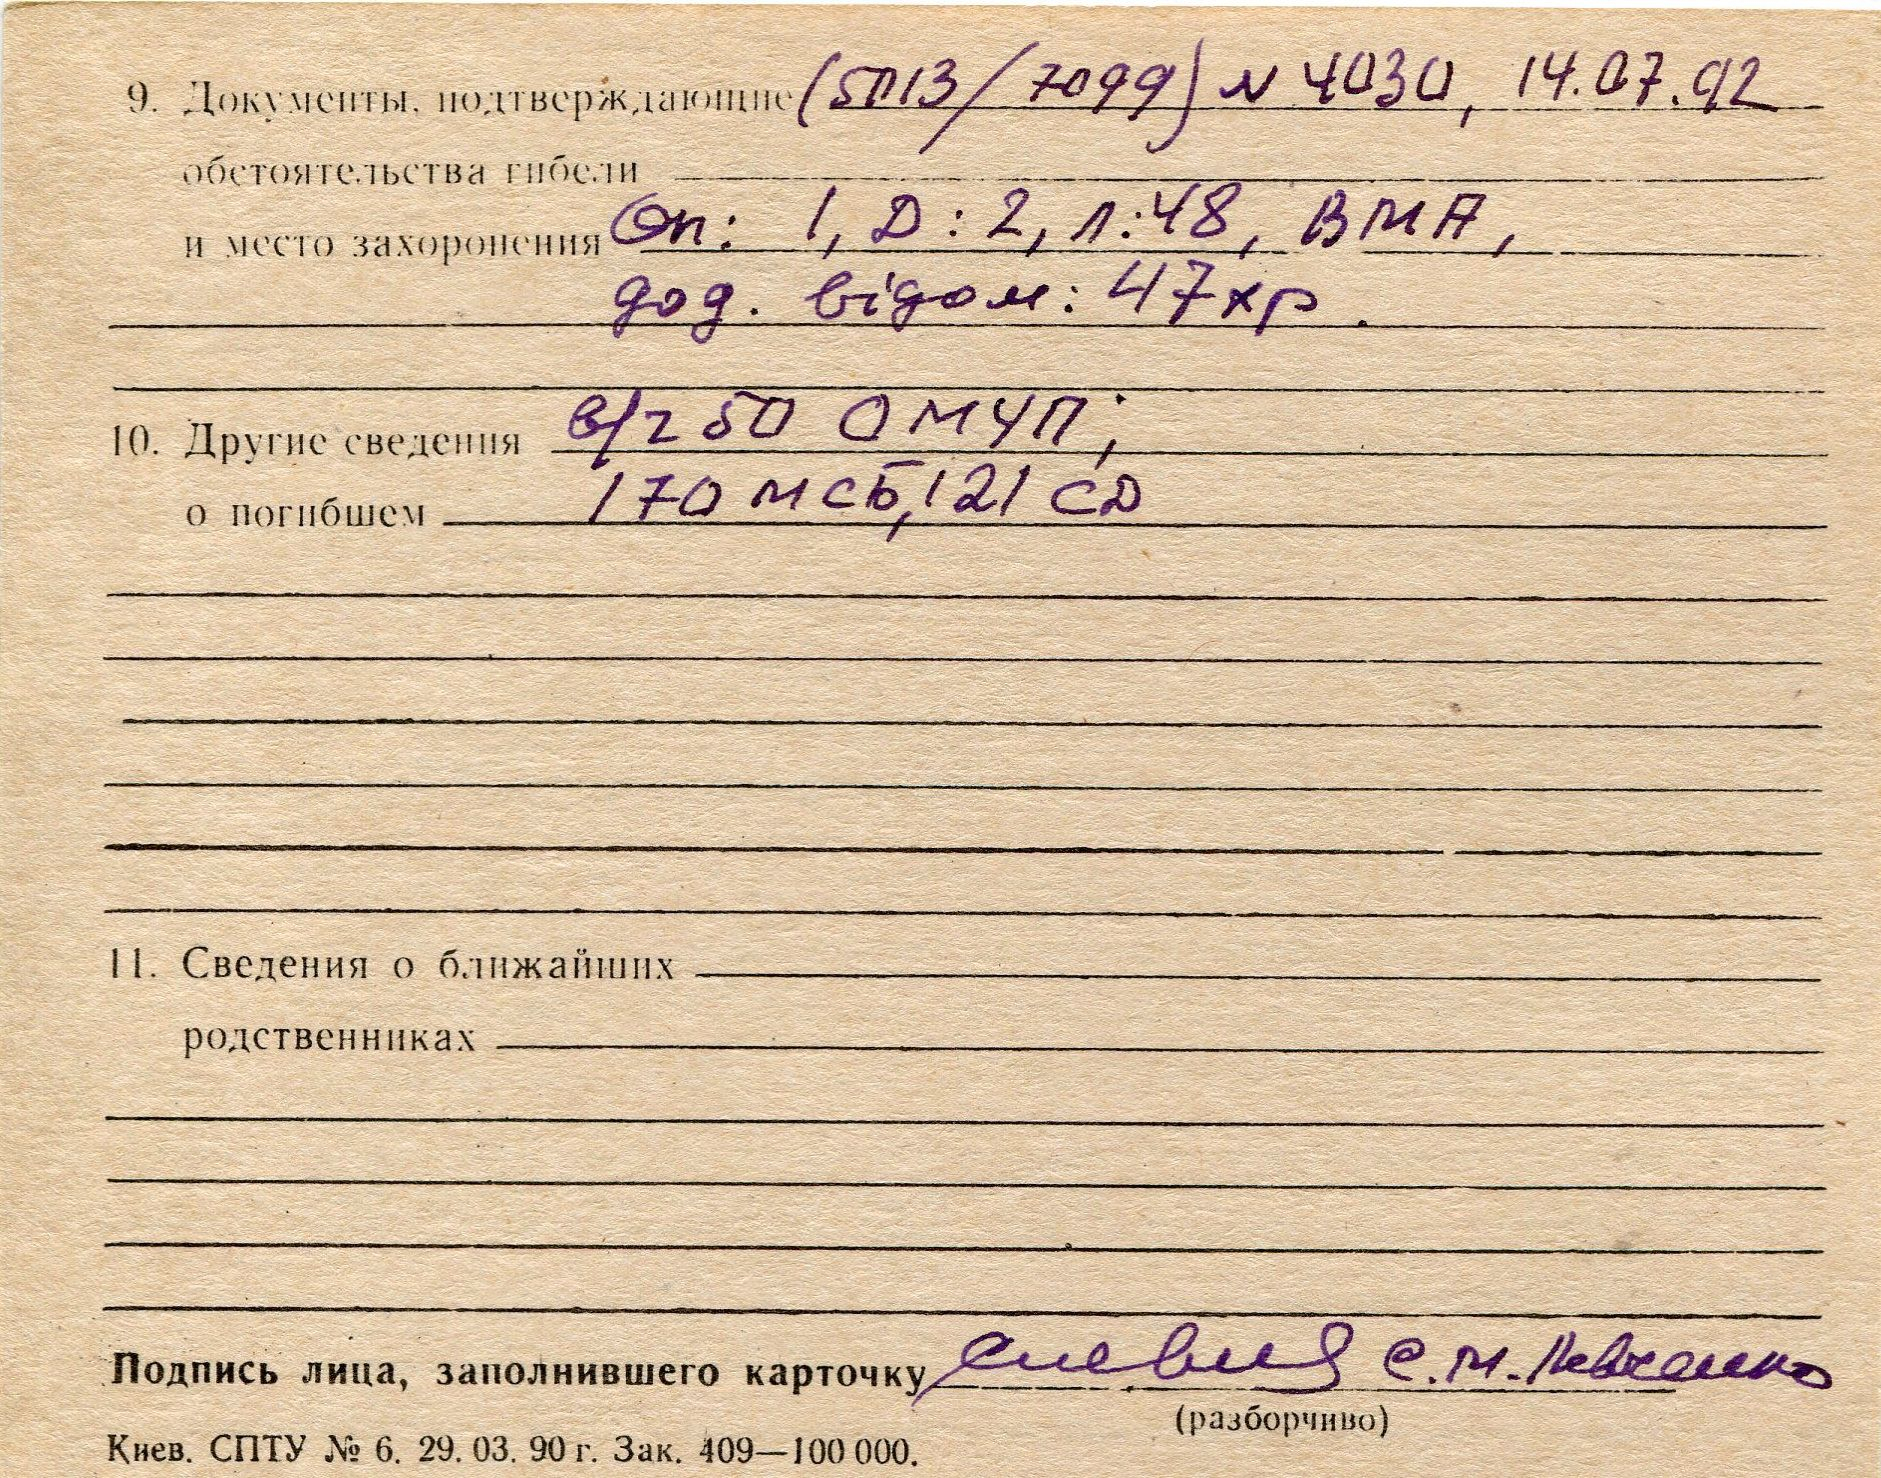 9. Документы, подтверждающие (5013/7099) N 4030, 14.07.92
обстоятельства гибели
и место захоронения Оп: 1, Д: 2, л: 48, ВМА,
дод. відом: 47 хр.
10. Другие сведения в/ч 50 ОМУП;
о погибшем 170 МСБ, 121 СД
11. Сведения о ближайших
родственниках
Подпись лица, заполнившего карточку С.М.
(разборчиво)
Киев. СПТУ № 6. 29. 03. 90 г. Зак. 409—100 000.